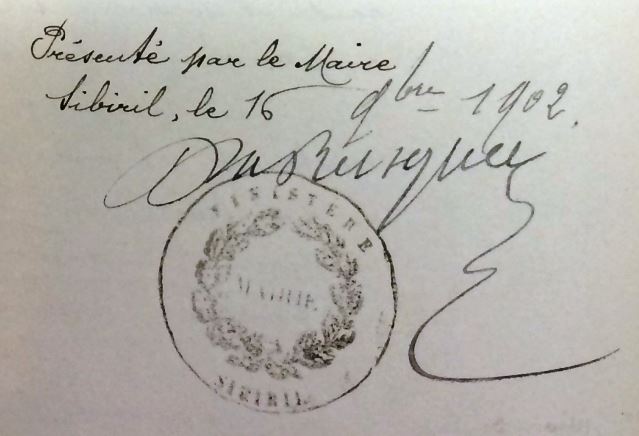 Présenté par le Maire
Sibiril, le 16 9bre 1902.
MINISTERE
MAIRIE
SIBIRIL